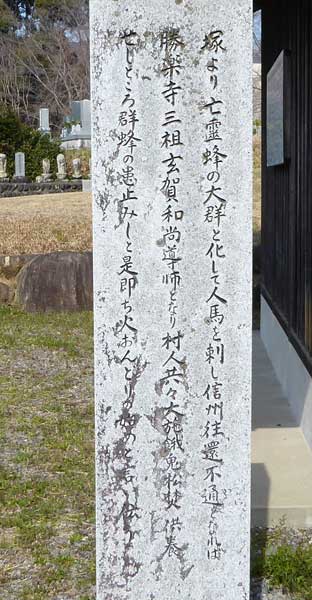 塚より亡霊蜂の大群と化して人馬を刺し信州往還不通となれば
勝楽寺三祖玄賀和尚導師となり村人共々大施餓鬼松焚供養
せしところ群蜂の患止みしと是即ち火おんどり始めと言い伝